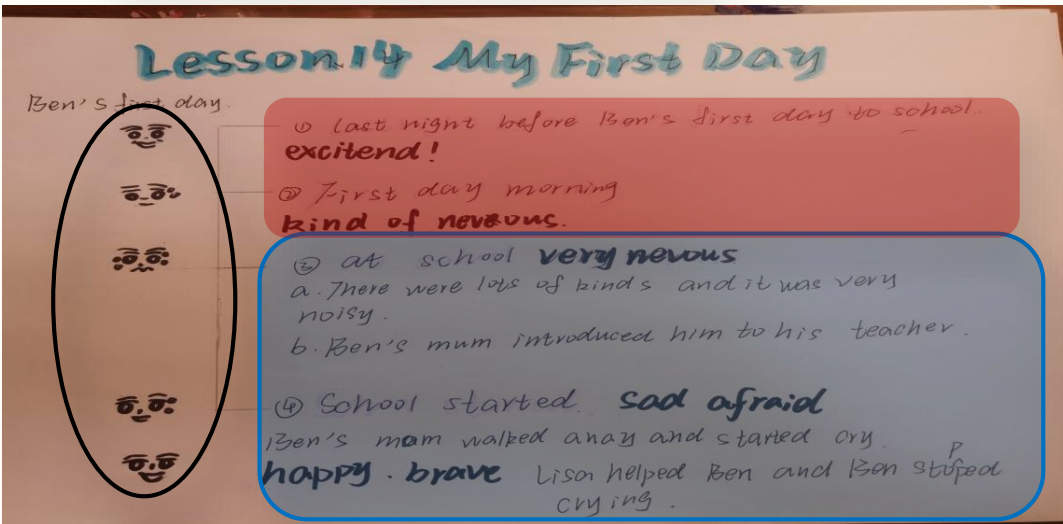 Lesson 14 My First Day
Ben's first day.
① last night before Ben's first day to school.
excitend!
② First day morning
kind of nervous.
③ at school very nevous
a. There were lots of kinds and it was very
noisy.
b. Ben's mum introduced him to his teacher.
④ School started. sad afraid
Ben's mam walked anay and started cry.
happy. brave Lisa helped Ben and Ben stoped
P
crying.